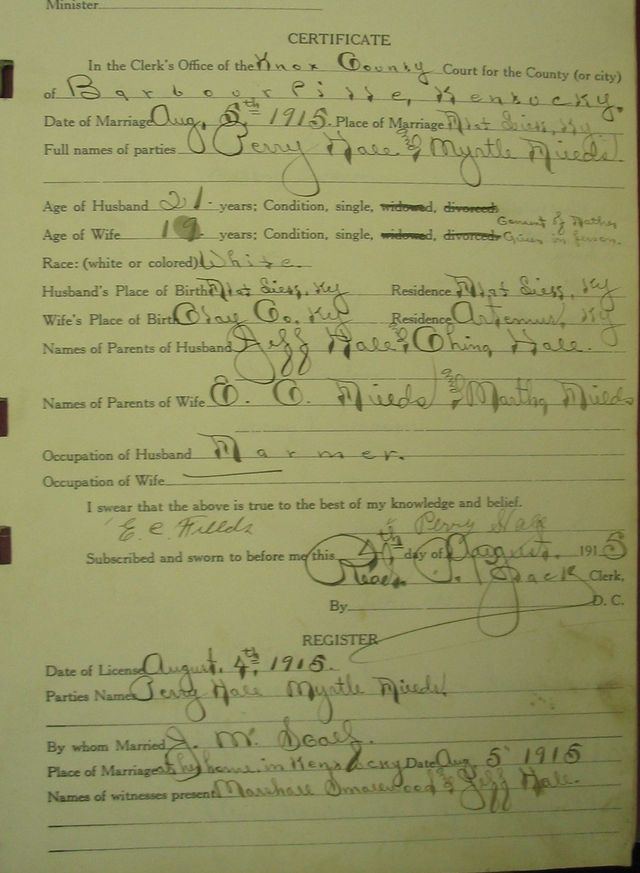 Minister
CERTIFICATE
In the Clerk's Office of the Knox County Court for the County (or city)
of Barbourville, Kentucky.
Date of Marriage Aug, 5th 1915. Place of Marriage Flat Lick, Ky
Full names of parties Perry Hale & Myrtle Fields.
Age of Husband 21. years; Condition, single, widowed, divorced
Consent of Father
Age of Wife 19. years; Condition, single, widowed, divorced Given in person.
Race: (white or colored) White.
Husband's Place of Birth Flat Lick, Ky Residence Flat Lick, Ky
Wife's Place of Birth Clay Co. Ky Residence Artemus, Ky
Names of Parents of Husband Jeff Hale & China Hale.
Names of Parents of Wife E. C. Fields and Martha Fields
Occupation of Husband Farmer.
Occupation of Wife
I swear that the above is true to the best of my knowledge and belief.
E. C. Fields Perry Hale
Subscribed and sworn to before me this 4th day of August, 1915
Black Clerk,
By D. C.
REGISTER
Date of License August, 4th 1915.
Parties Names Perry Hale Myrtle Fields
By whom Married J. M.
Place of Marriage at home in Kentucky Date Aug 5 1915
Names of witnesses present Marshall Smallwood & Jeff Hale.